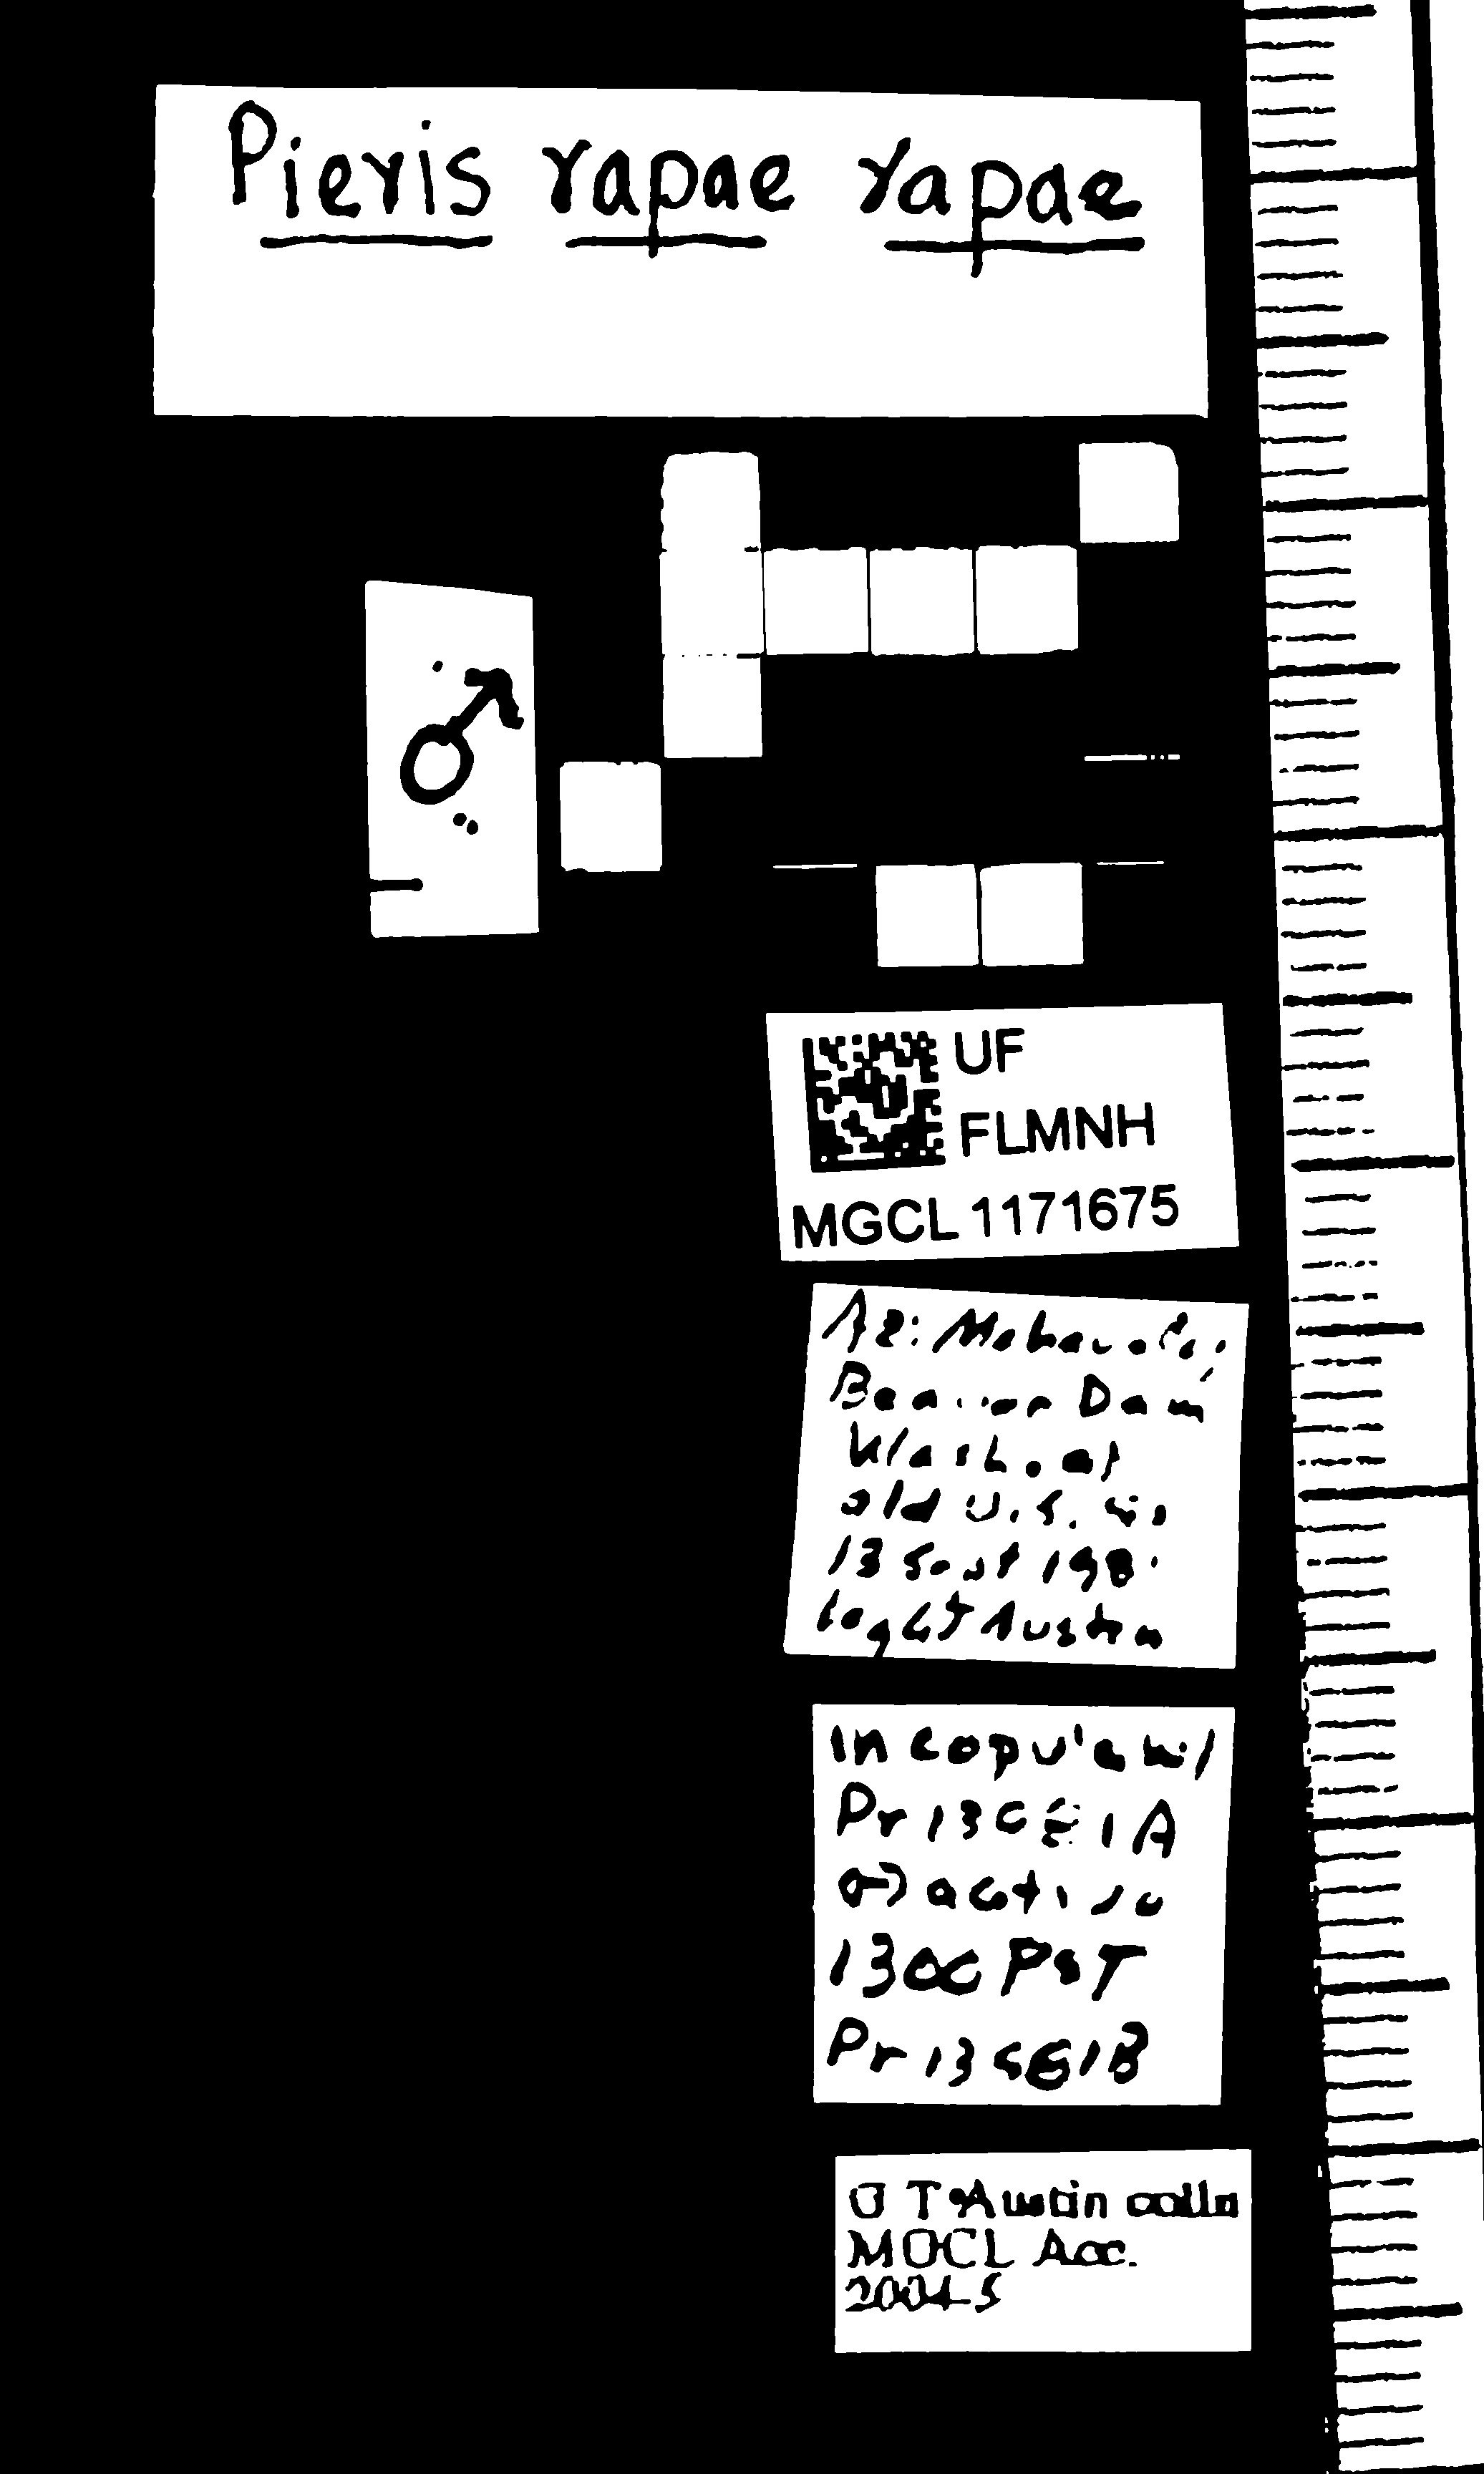 Pieris rapae rapae
♂
UF
FLMNH
MGCL 1171675
Az: Mohave Co.,
Beaver Dam
Wash, at
old U.S.
13 Sept
leg G T Austin
In copula w/
Pr
active
1300 PST
Pr
G T Austin colln
MGCL Acc.
2004-5